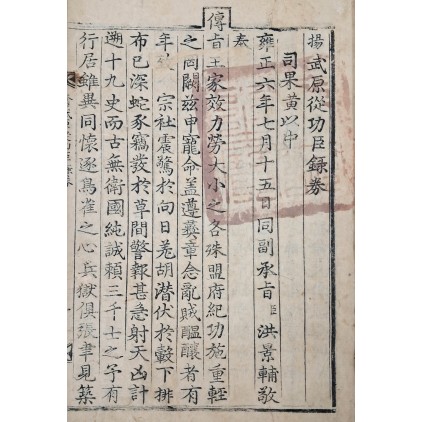 揚武原從功臣錄券
司果黃以中
雍正六年七月十五日同副承旨臣洪景輔敬
奉
傳旨王家效力勞大小之各殊盟府紀功施重輕
之罔闕兹申寵命盖遵彝章念亂賊醞釀者有
年 宗社震驚於向日羌胡潜伏於轂下排
布已深蛇豕竊發於草間警報甚急射天凶計
遡十九史而古無衛國純誠賴三千士之予有
行居雖異同懷逐鳥雀之心兵獄俱張聿見築